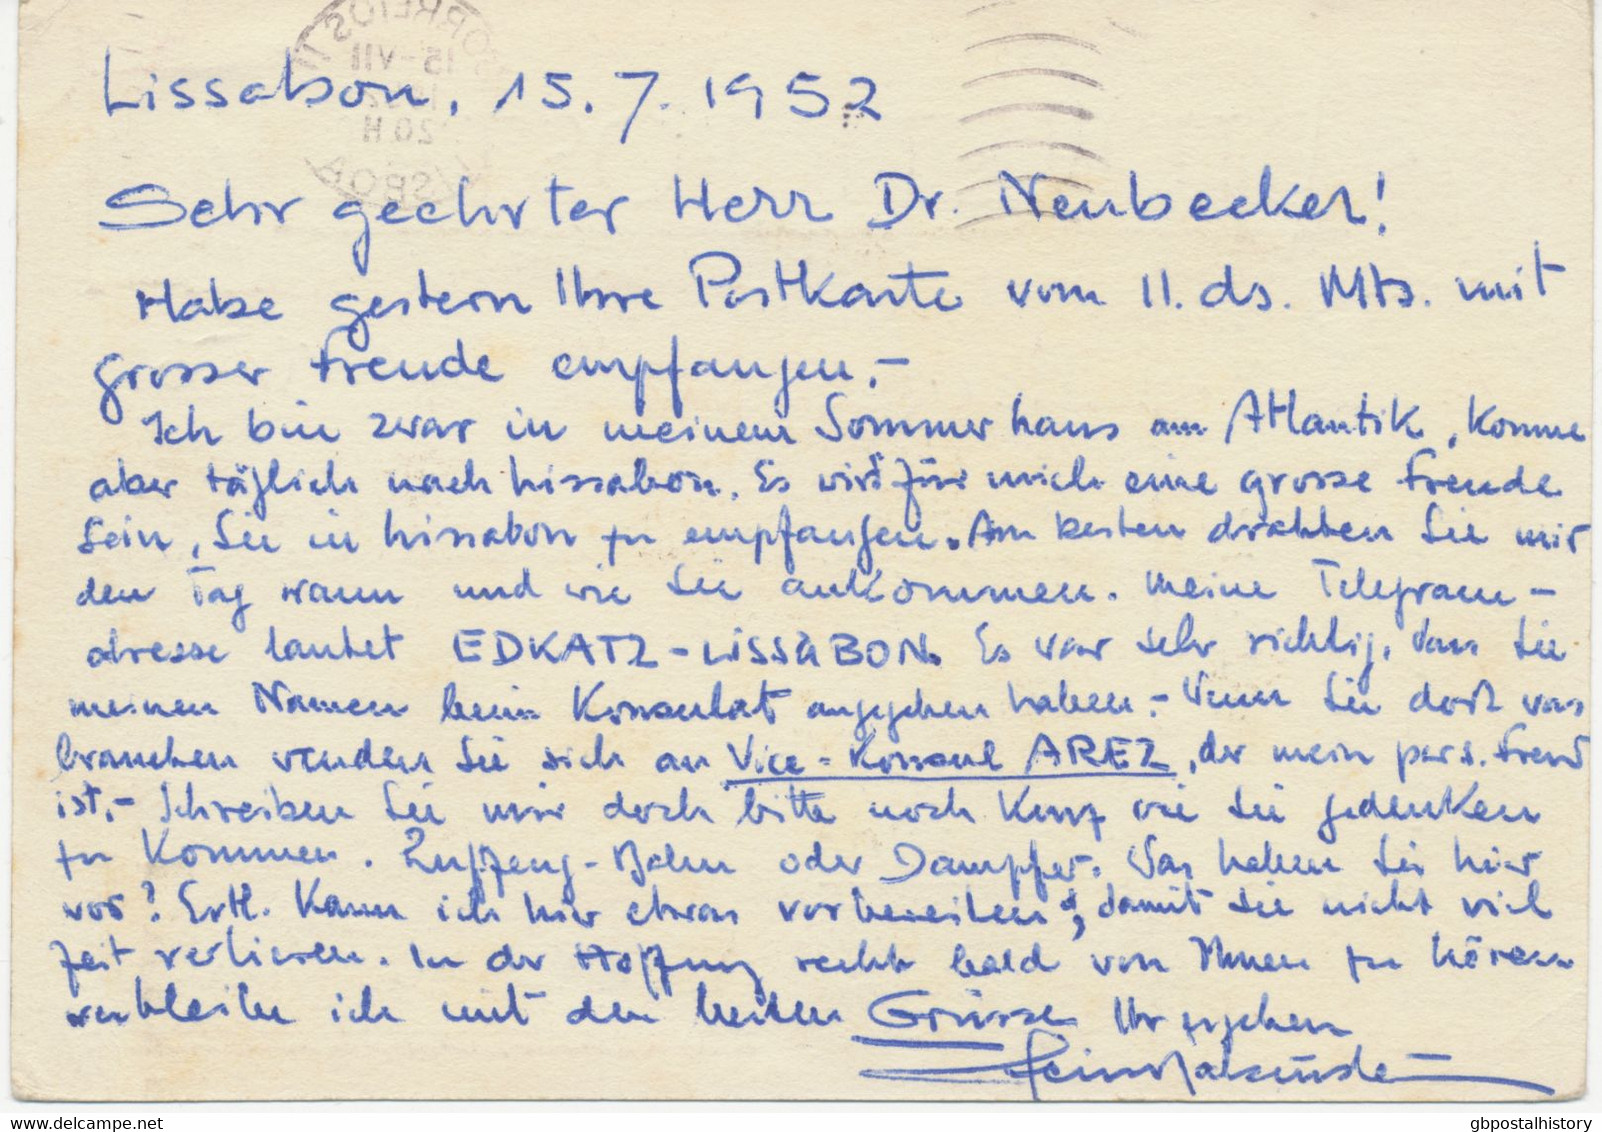 Lissabon, 15.7.1952
Sehr geehrter Herr Dr. Neubecker!
Habe gestern Ihre Postkarte vom 11. ds. Mts. mit
grosser Freude empfangen.-
Ich bin zwar in meinem Sommerhaus am Atlantik, komme
aber täglich nach Lissabon. Es wird für mich eine grosse Freude
sein, Sie in Lissabon zu empfangen. Am besten drahten Sie mir
den Tag wann und wie Sie ankommen. Meine Telegram-
adresse lautet EDKATZ-LISSABON. Es war sehr richtig, dass Sie
meinen Namen beim Konsulat angegeben haben.- Wenn Sie dort was
brauchen wenden Sie sich an Vice-Konsul AREZ, der mein pers. Freund
ist.- Schreiben Sie mir doch bitte noch kurz wie Sie gedenken
zu kommen. Flugzeug-Bahn oder Dampfer. Was haben Sie hier
vor? Evtl. kann ich hier etwas vorbereiten, damit Sie nicht viel
Zeit verlieren. In der Hoffnung recht bald von Ihnen zu hören
verbleibe ich mit den besten Grüssen Ihr ergebener
CORREIOS
15-VII
20 H
LISBOA
gbpostalhistory